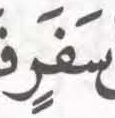 سَفَرٍ